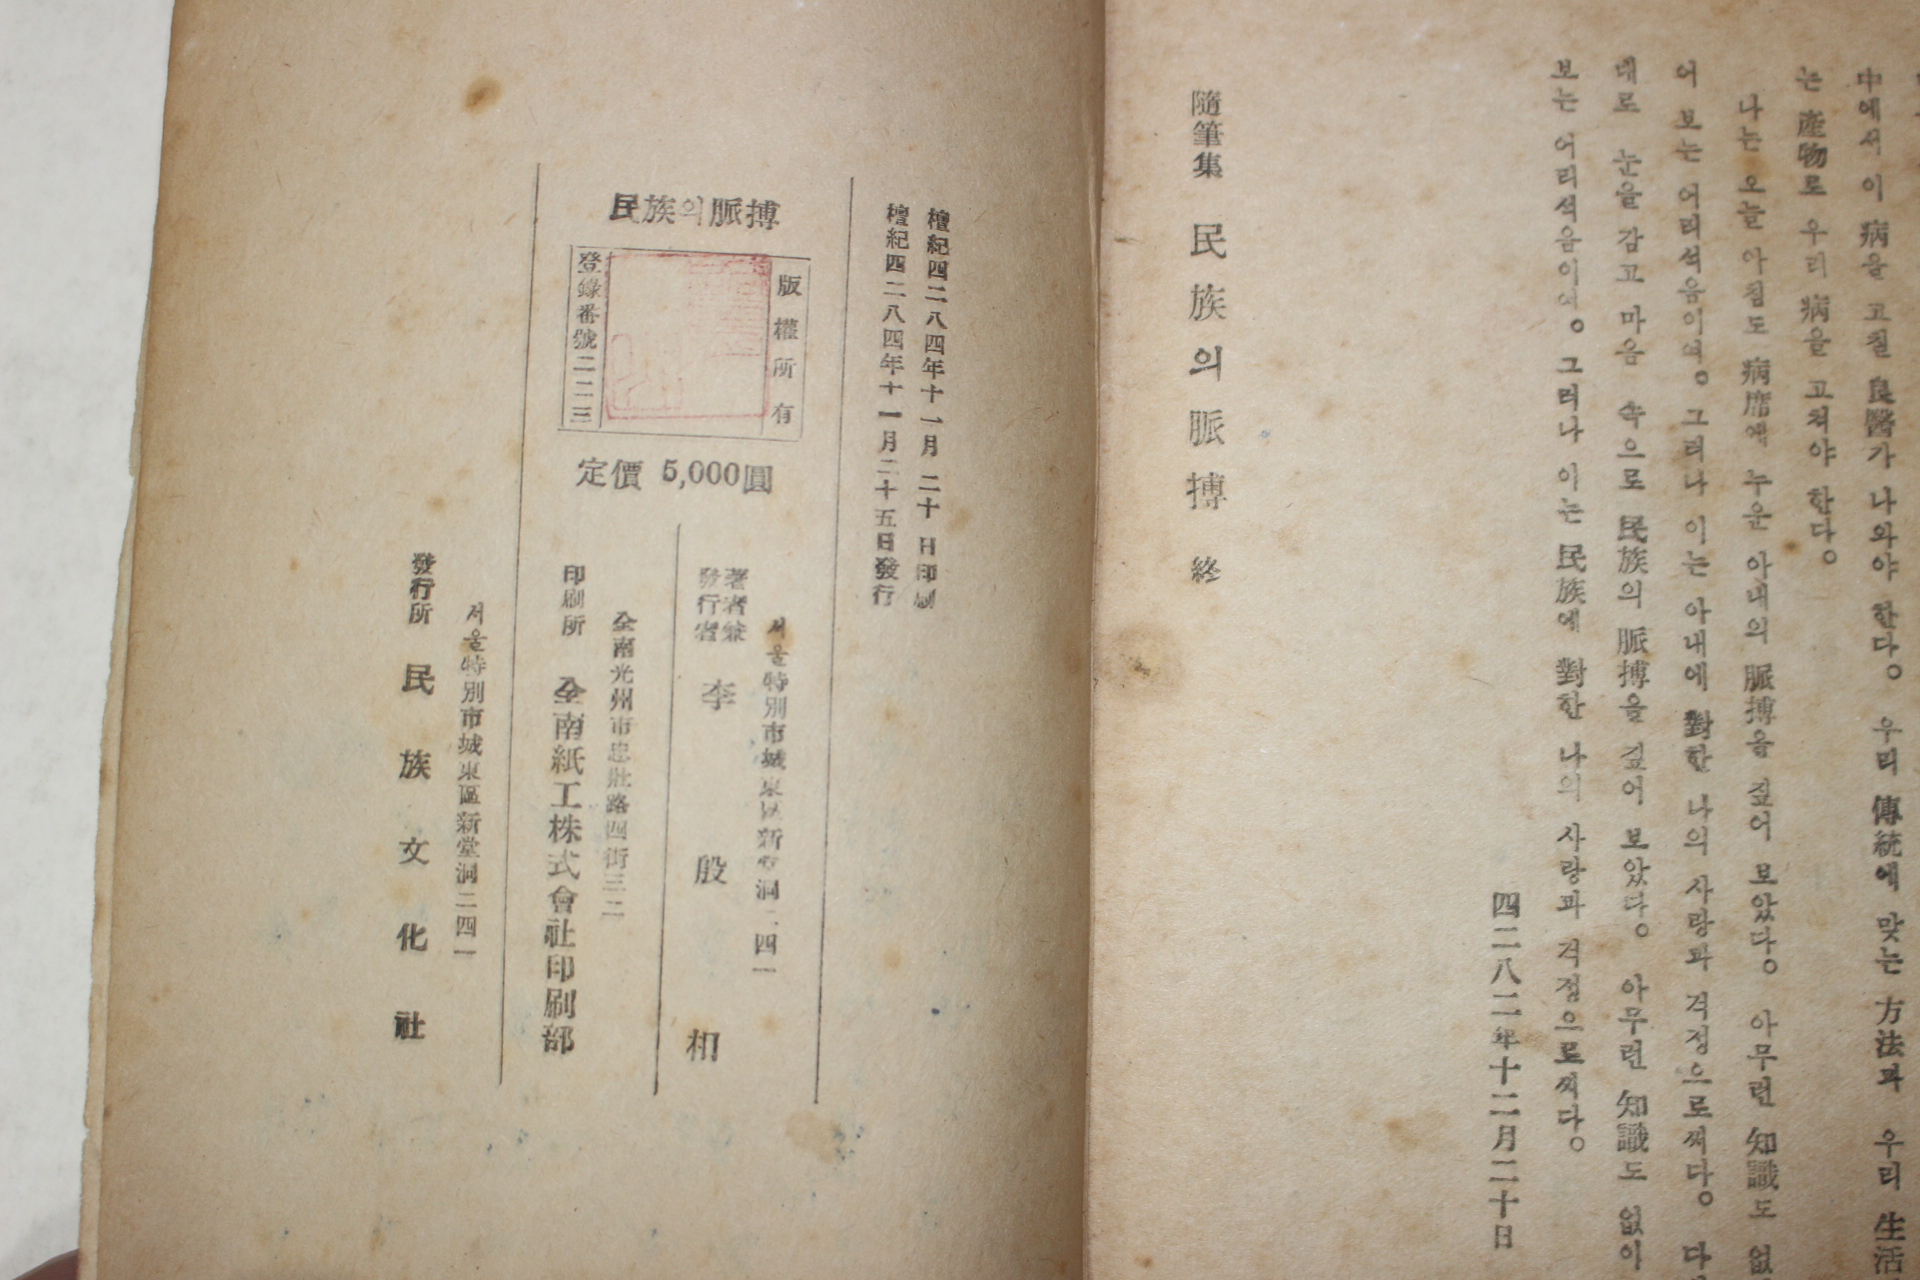 中에서 이 病을 고칠 良醫가 나와야 한다。 우리 傳統에 맞는 方法과 우리 生活
는 產物로 우리 病을 고쳐야 한다。
나는 오늘 아침도 病席에 누운 아내의 脈搏을 짚어 보았다。 아무런 知識도 없
어 보는 어리석음이여。 그러나 이는 아내에 對한 나의 사랑과 걱정으로써다。 다
대로 눈을 감고 마음 속으로 民族의 脈搏을 짚어 보았다。 아무런 知識도 없이
보는 어리석음이여。 그러나 이는 民族에 對한 나의 사랑과 걱정으로써다。
四二八二年十二月二十日
隨筆集 民族의脈搏 終
檀紀四二八四年十一月二十日印刷
檀紀四二八四年十一月二十五日發行
民族의脈搏
版權所有
登錄番號二二三
定價 5,000圓
서울特別市城東區新堂洞二四一
著者兼
發行者 李殷相
全南光州市忠壯路四街三二
印刷所 全南紙工株式會社印刷部
서울特別市城東區新堂洞二四一
發行所 民族文化社